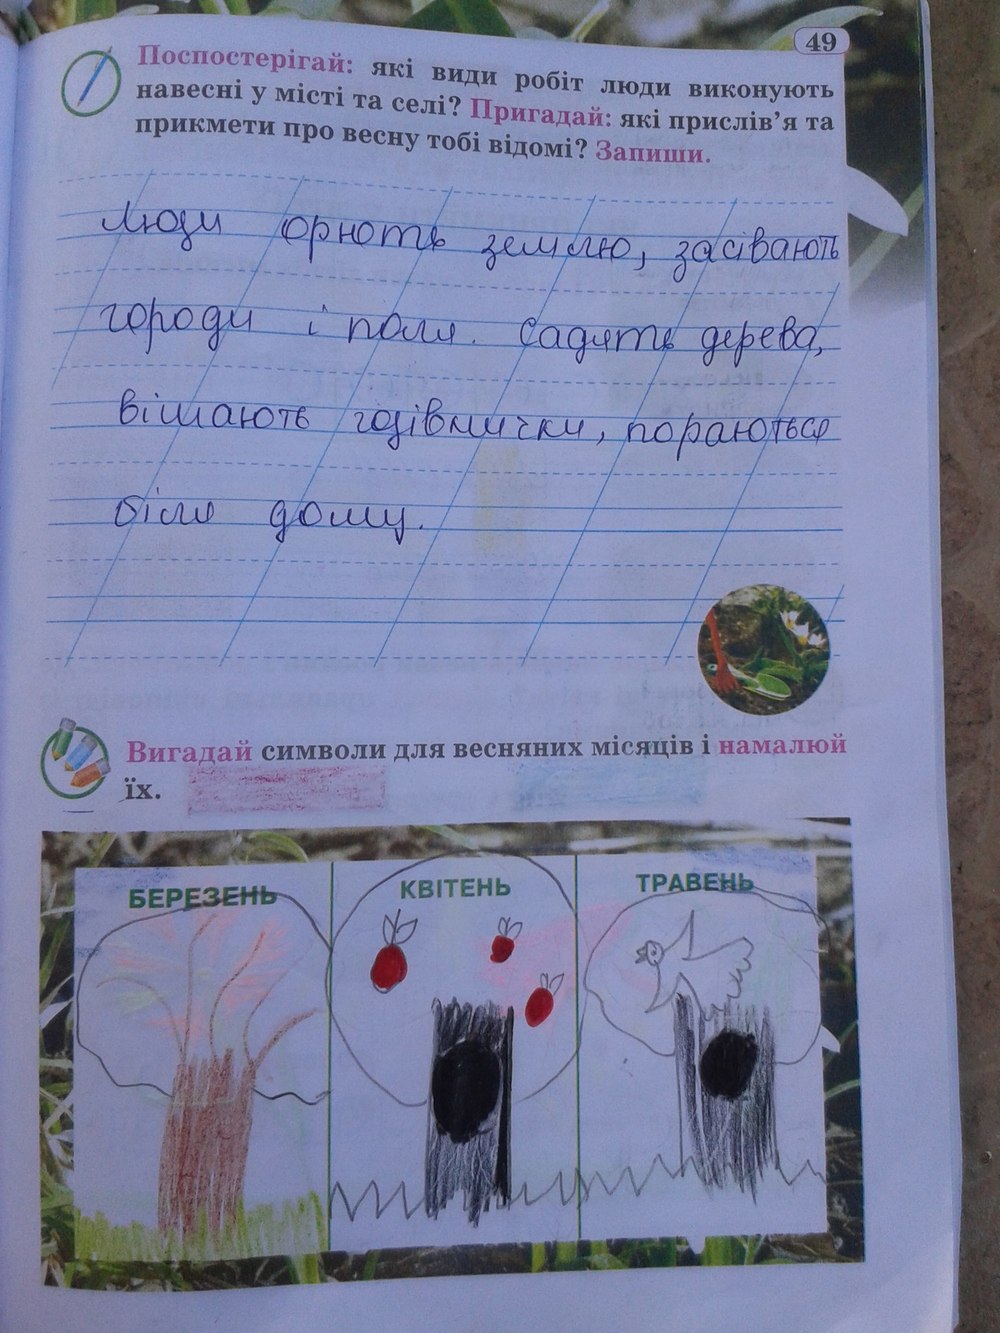 49
Поспостерігай: які види робіт люди виконують
навесні у місті та селі? Пригадай: які прислів'я та
прикмети про весну тобі відомі? Запиши.
Люди орють землю, засівають
городи і поля. Садять дерева,
вішають годівнички, пораються
біля дому.
Вигадай символи для весняних місяців і намалюй
їх.
БЕРЕЗЕНЬ
КВІТЕНЬ
ТРАВЕНЬ